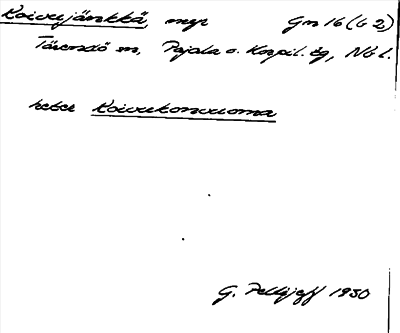 Koivujänkkä, myr Gm 16 (G 2)
Tärendö sn, Pajala o. Korpil. tg, Nb l.
heter Koivukonvuoma
G. Pellijeff 1930